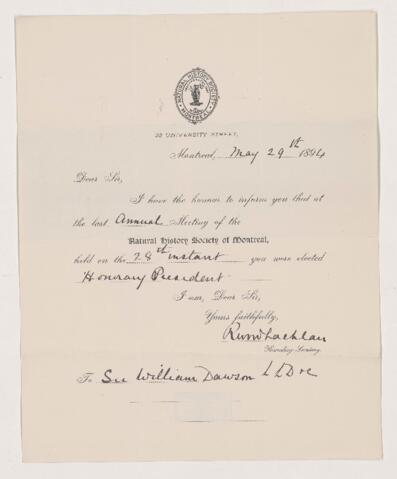 NATURAL HISTORY SOCIETY
MONTREAL
32 UNIVERSITY STREET,
Montreal, May 29th 1894
Dear Sir,
I have the honour to inform you that at
the last Annual Meeting of the
Natural History Society of Montreal,
held on the 28th instant you were elected
Honorary President
I am, Dear Sir,
Yours faithfully,
Recording Secretary.
To Sir William Dawson LLD &c